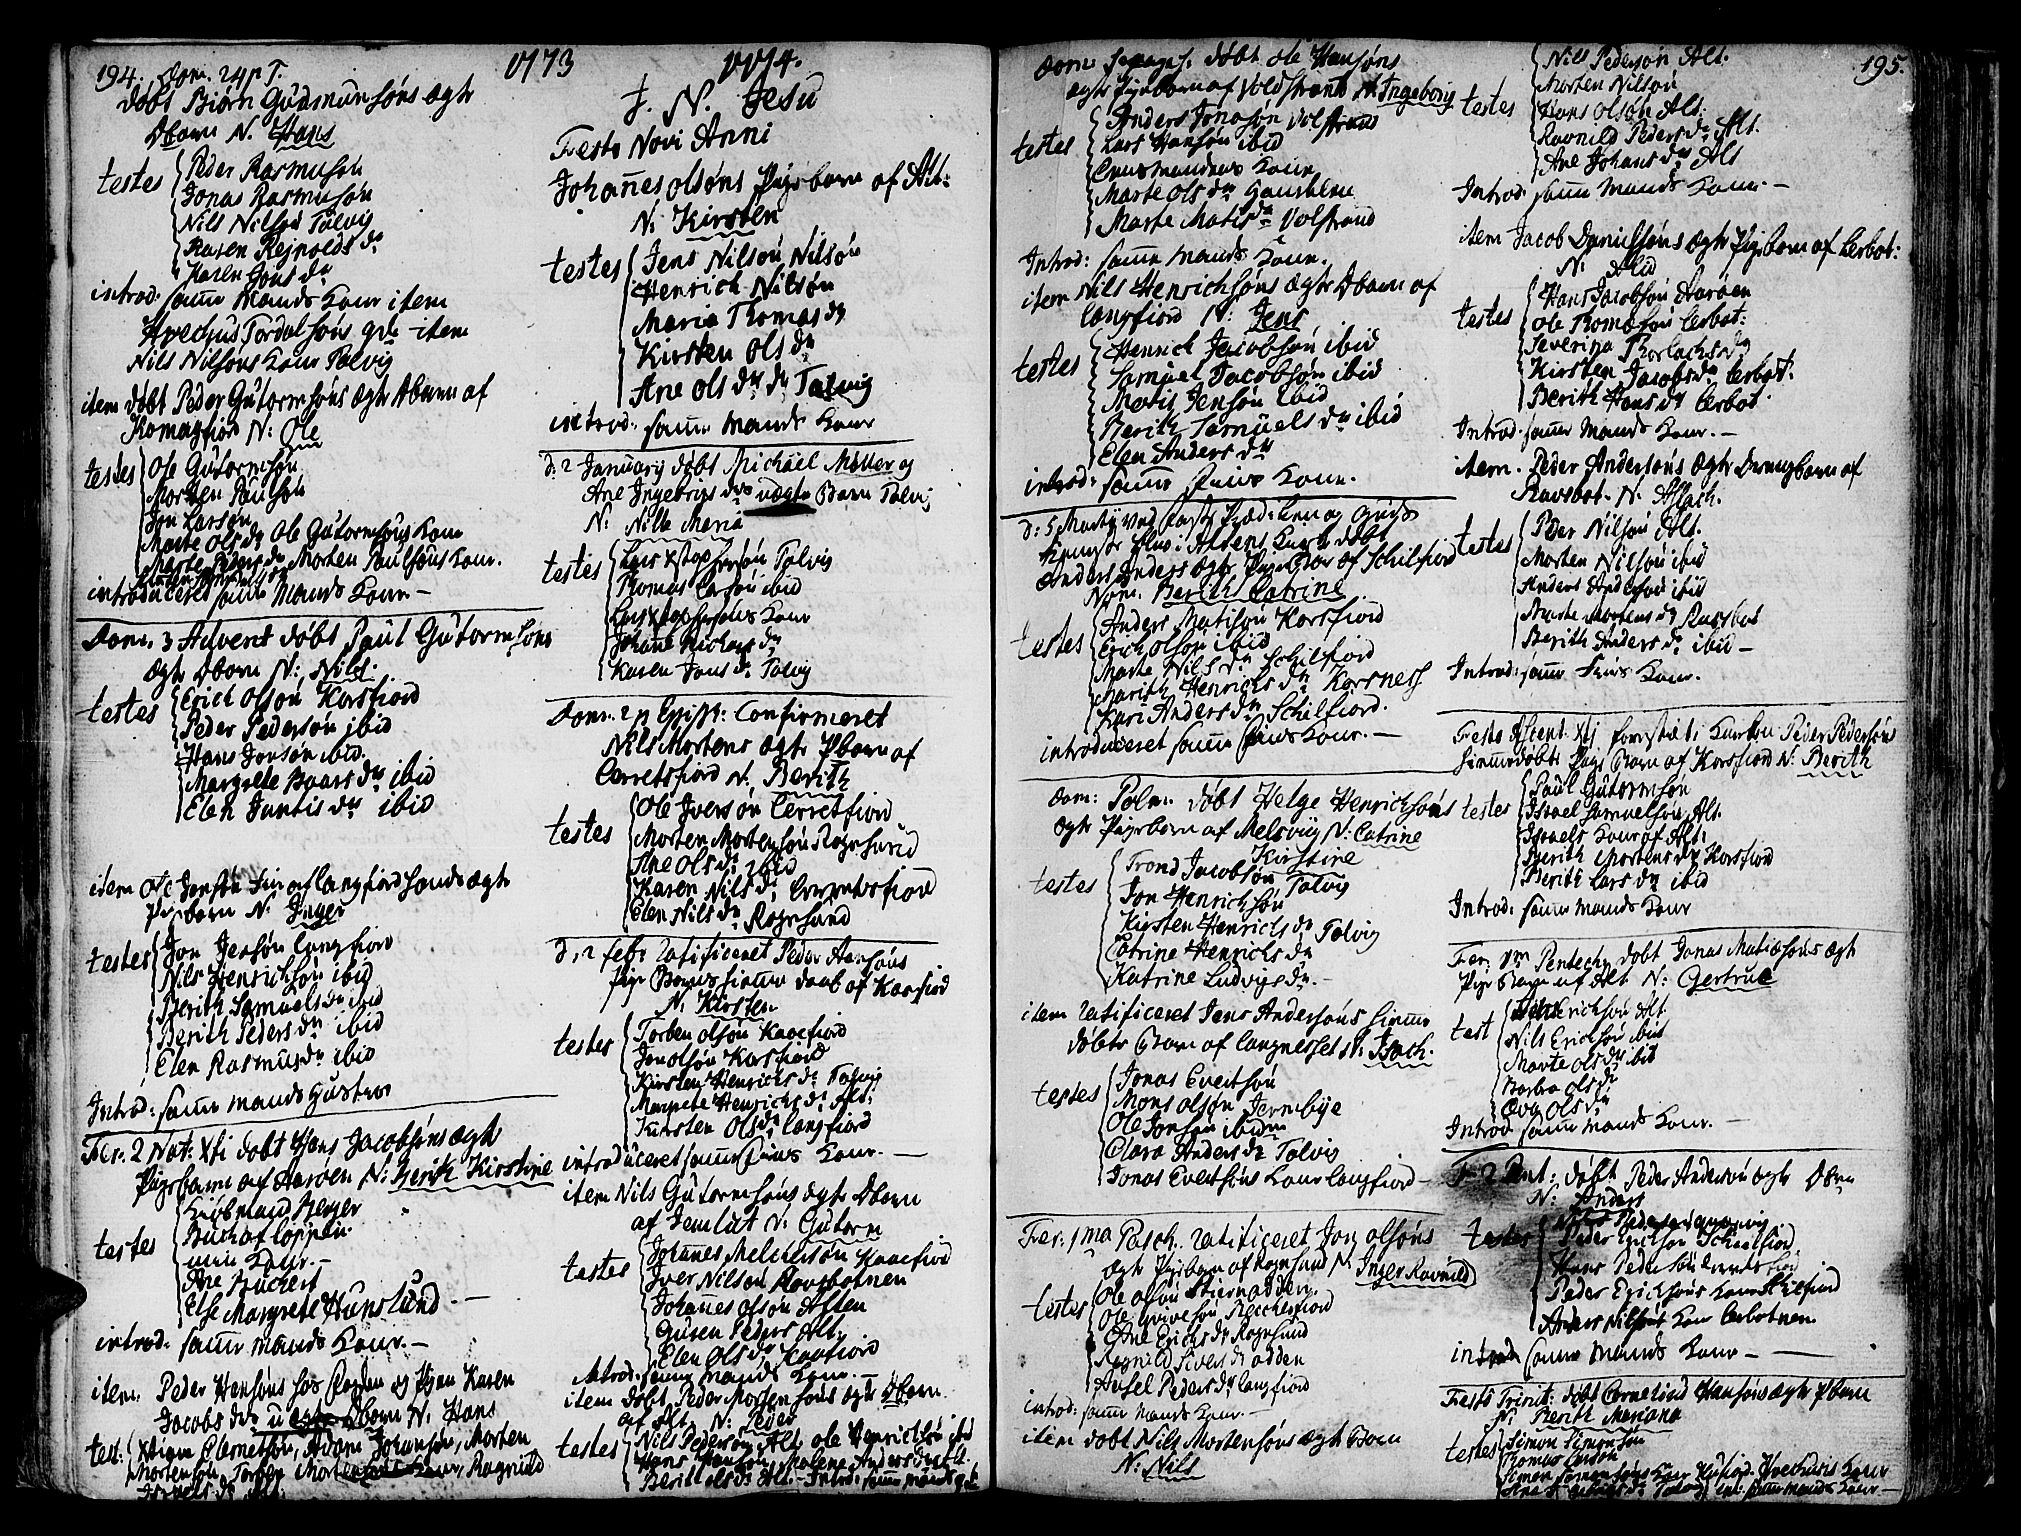 194. Dom. 24 p T. 1773
døbt Biørn Gudmunsøns ægte
Dbarn N. Hans
testes Peder Rasmusøn
Jonas Rasmusøn
Nils Nilsøn Talvig
Karen Reynolds dr
Karen Jons dr
introd. samme Mands Kone item
Nils Nilsøns Kone Talvig
item døbt Peder Gutormsøns ægte Dbarn af
Komagfiord N: Ole
testes Ole Gutormsøn
Morten Paulsøn
Jon Larsøn
Marte Ols dr Ole Gutormsøns Kone
Marte Peders dr Morten Paulsøns Kone.
introduceret samme Mands Kone —
Dom. 3 Advent døbt Paul Gutormsøns
ægte Dbarn N: Nils.
testes Erich Olsøn Korsfiord
Peder Pedersøn ibid
Hans Jonsøn ibid.
Margrete Baars dr ibid
Elen Jantis dr ibid
item Ole Jonsøn Fin af Langfiord hands ægte
Pigebarn N: Inger
testes Jon Jensøn Langfiord
Nils Henrichsøn ibid
Berith Samuels dr ibid
Berith Peders dr ibid
Elen Rasmus dr ibid
Introd: samme Mands Hustroe
Fer. 2 Nat: Xti døbt Hans Jacobsøns ægte
Pigebarn af Aarøen N: Berith Kirstine
testes Kiøbmand Meyer
Buch af Loppen
min Kone. —
Ane Buchert
Else Margrete Hunslund —
introd: samme Mands Kone. —
item. Peder Hansøns og Pigen Karen
Jacobs dr uægte Dbarn N: Hans
test: Adam Johansøn, Morten
Mortensøn, Torben Kone, Ragnild
1774.
J. N. Jesu
Festo Novi Anni
Johannes Olsøns Pigebarn af Alt:
N: Kirsten
testes Jens Nilsøn Nilsøn
Henrich Nilsøn
Maria Thomas dr
Kirsten Ols dr
Ane Ols dr Talvig
introd: samme Mands Kone
d: 2 January døbt Michael Møller og
Ane Ingebrigs drs uægte Barn Talvig
N: Nille Maria
testes Lars Xstophersøn Talvig
Thomas Larsøn ibid
Lars Xstophersøns Kone
Johanne Michaels dr
Karen Jons dr Talvig
Dom. 2 p Epiph: Confirmeret
Nils Mortens ægte Pbarn af
Lerretsfiord N: Berith
testes Ole Iversøn Lerretfiord
Morten Mortensøn Rognsund
Ane Ols dr ibid
Karen Nils dr Lerretsfiord
Elen Nils dr Rognsund
d. 2 Febr. ratificeret Peder Hansøns
Pige Barns hiemme daab af Kaafiord
N. Kirsten
testes Torben Olsøn Kaaefiord
Jon Olsøn Korsfiord
Kirsten Henrichs dr Talvig
Margrete Henrichs dr Alt:
Kirsten Ols dr Langfiord
introduceret samme Finns Kone. —
item Nils Gutormsøns ægte Dbarn
af Jemlut N: Gutorm
testes Johannes Melchersøn Kaaefiord
Iver Nilsøn Ravsbotnen
Johannes Olsøn Aften
Guren Peders Alt.
Elen Ols dr Kaafiord
Introd: samme Mands Kone. —
item døbt Peder Mortensøns ægte Dbarn
af Alt N: Peder
testes Nils Pedersøn Alt Ole Henrichsøn ibid
Hans Hansøn, Malene Anders dr Alt.
Berit Ols dr Alt — Introd: samme Mands
195.
Dom Sexages. døbt Ole Hansøns
ægte Pigebarn af Volstrand N: Ingeborg
testes Anders Jonasøn Volstrand
Lars Hansøn ibid
Marte Ols dr
Marte Matis dr Volstrand
Introd: samme Mands Kone.
item Nils Henrichsøns ægte Dbarn af
Langfiord N: Jens
testes Henrich Jacobsøn ibid
Samuel Jacobsøn ibid
Matis Jensøn ibid
Berith Samuels dr ibid
Elen Anders dr
introd: samme Finns Kone.
d: 5 Martii
Anders Anders ægte Pige Barn af Schilfiord
Nom. Berith Catrine
testes Anders Matisøn Korsfiord
Erich Olsøn ibid
Marte Nils dr Schilfiord
Marith Henrichs dr Korsness
Kari Anders dr Schilfiord.
introduceret samme Finns Kone. —
Dom: Palm: døbt Helge Henrichsøns
ægte Pigebarn af Melsvig N: Catrine
Kirstine
testes Trond Jacobsøn Talvig
Jon Henrichsøn
Kirsten Henrichs dr Talvig
Catrine Henrichs dr
Katrine Ludvigs dr —
item ratificeret Jens Andersøns hiemme
døbte Barn af Langnesset N: Isach.
testes Jonas Evertsøn
Mons Olsøn Jernebye
Ole Jonsøn ibidem
Clara Anders dr Talvig
Jonas Evertsøns Kone Langfiord —
Fer: 1ma Pasch. ratificeret Jon Olsøns
ægte Pigebarn af Rognsund N: Inger Ravnild
testes Ole Olsøn Stiernodden
Ane Erichs dr Rognsund
Ragnild Sivers dr Odden
Peders dr Langfiord
introd: samme Mands Kone. —
item døbt Nils Mortensøns ægte Barn
N: Nils
testes Nils Pedersøn Alt.
Morten Nilsøn
Hans Olsøn Alt:
Ravnild Peders dr Alt.
Ane Johans dr Alt
Introd: samme Mands Kone. —
item Jacob Danielsøns ægte Pigebarn af Lerbot:
N: Alid
testes Hans Jacobsøn Aarøen
Ole Thomesøn Lerbot:
Severina Thorlachs dr
Kirsten Jacobs dr Lerbot:
Berith Hans dr Lerbot.
Introd: samme Mands Kone. —
item. Peder Andersøns ægte Drengbarn af
Ravsbot. N. Aslach.
testes Peder Nilsøn Alt.
Morten Nilsøn ibid
Anders Andersøn ibid
Marte Mortens dr Ravsbot
Berith Anders dr ibid —
Introd: samme Finns Kone.
Festo Ascent. Xti forestillet i Kirken Peder Pedersøns
hiemmedøbte Pige Barn af Korsfiord N: Berith
testes Paul Gutormsøn
Israel Samuelsøn Alt.
Israels Kone af Alt.
Berith Mortens dr Korsfiord
Berith Lars dr ibid
Introd: samme Mands Kone
Fer: 1ma Pentech: døbt Jonas Matiæsøns ægte
Pige Barn af Alt N: Gertrue
test Erichsøn Alt.
Nils Erichsøn ibid
Marte Ols dr ibid
Barbra Ols dr
Ols dr
Introd samme Mands Kone. —
F. 2 Pent: døbt Peder Andersøn ægte Dbarn
N: Anders
testes Peder Erichsøn Schielfiord
Hans Pedersøn
Peder Erichsøns Kone Skilfiord
Anders Nilsøns Kone Lerbotnen.
introd samme Mands Kone —
Festo Trinit: døbt Cornelius Hansøns ægte Pbarn
N. Berith Mariana
testes Simon Simonsøn
Thomas Larsøn
Simon Simonsøns Kone